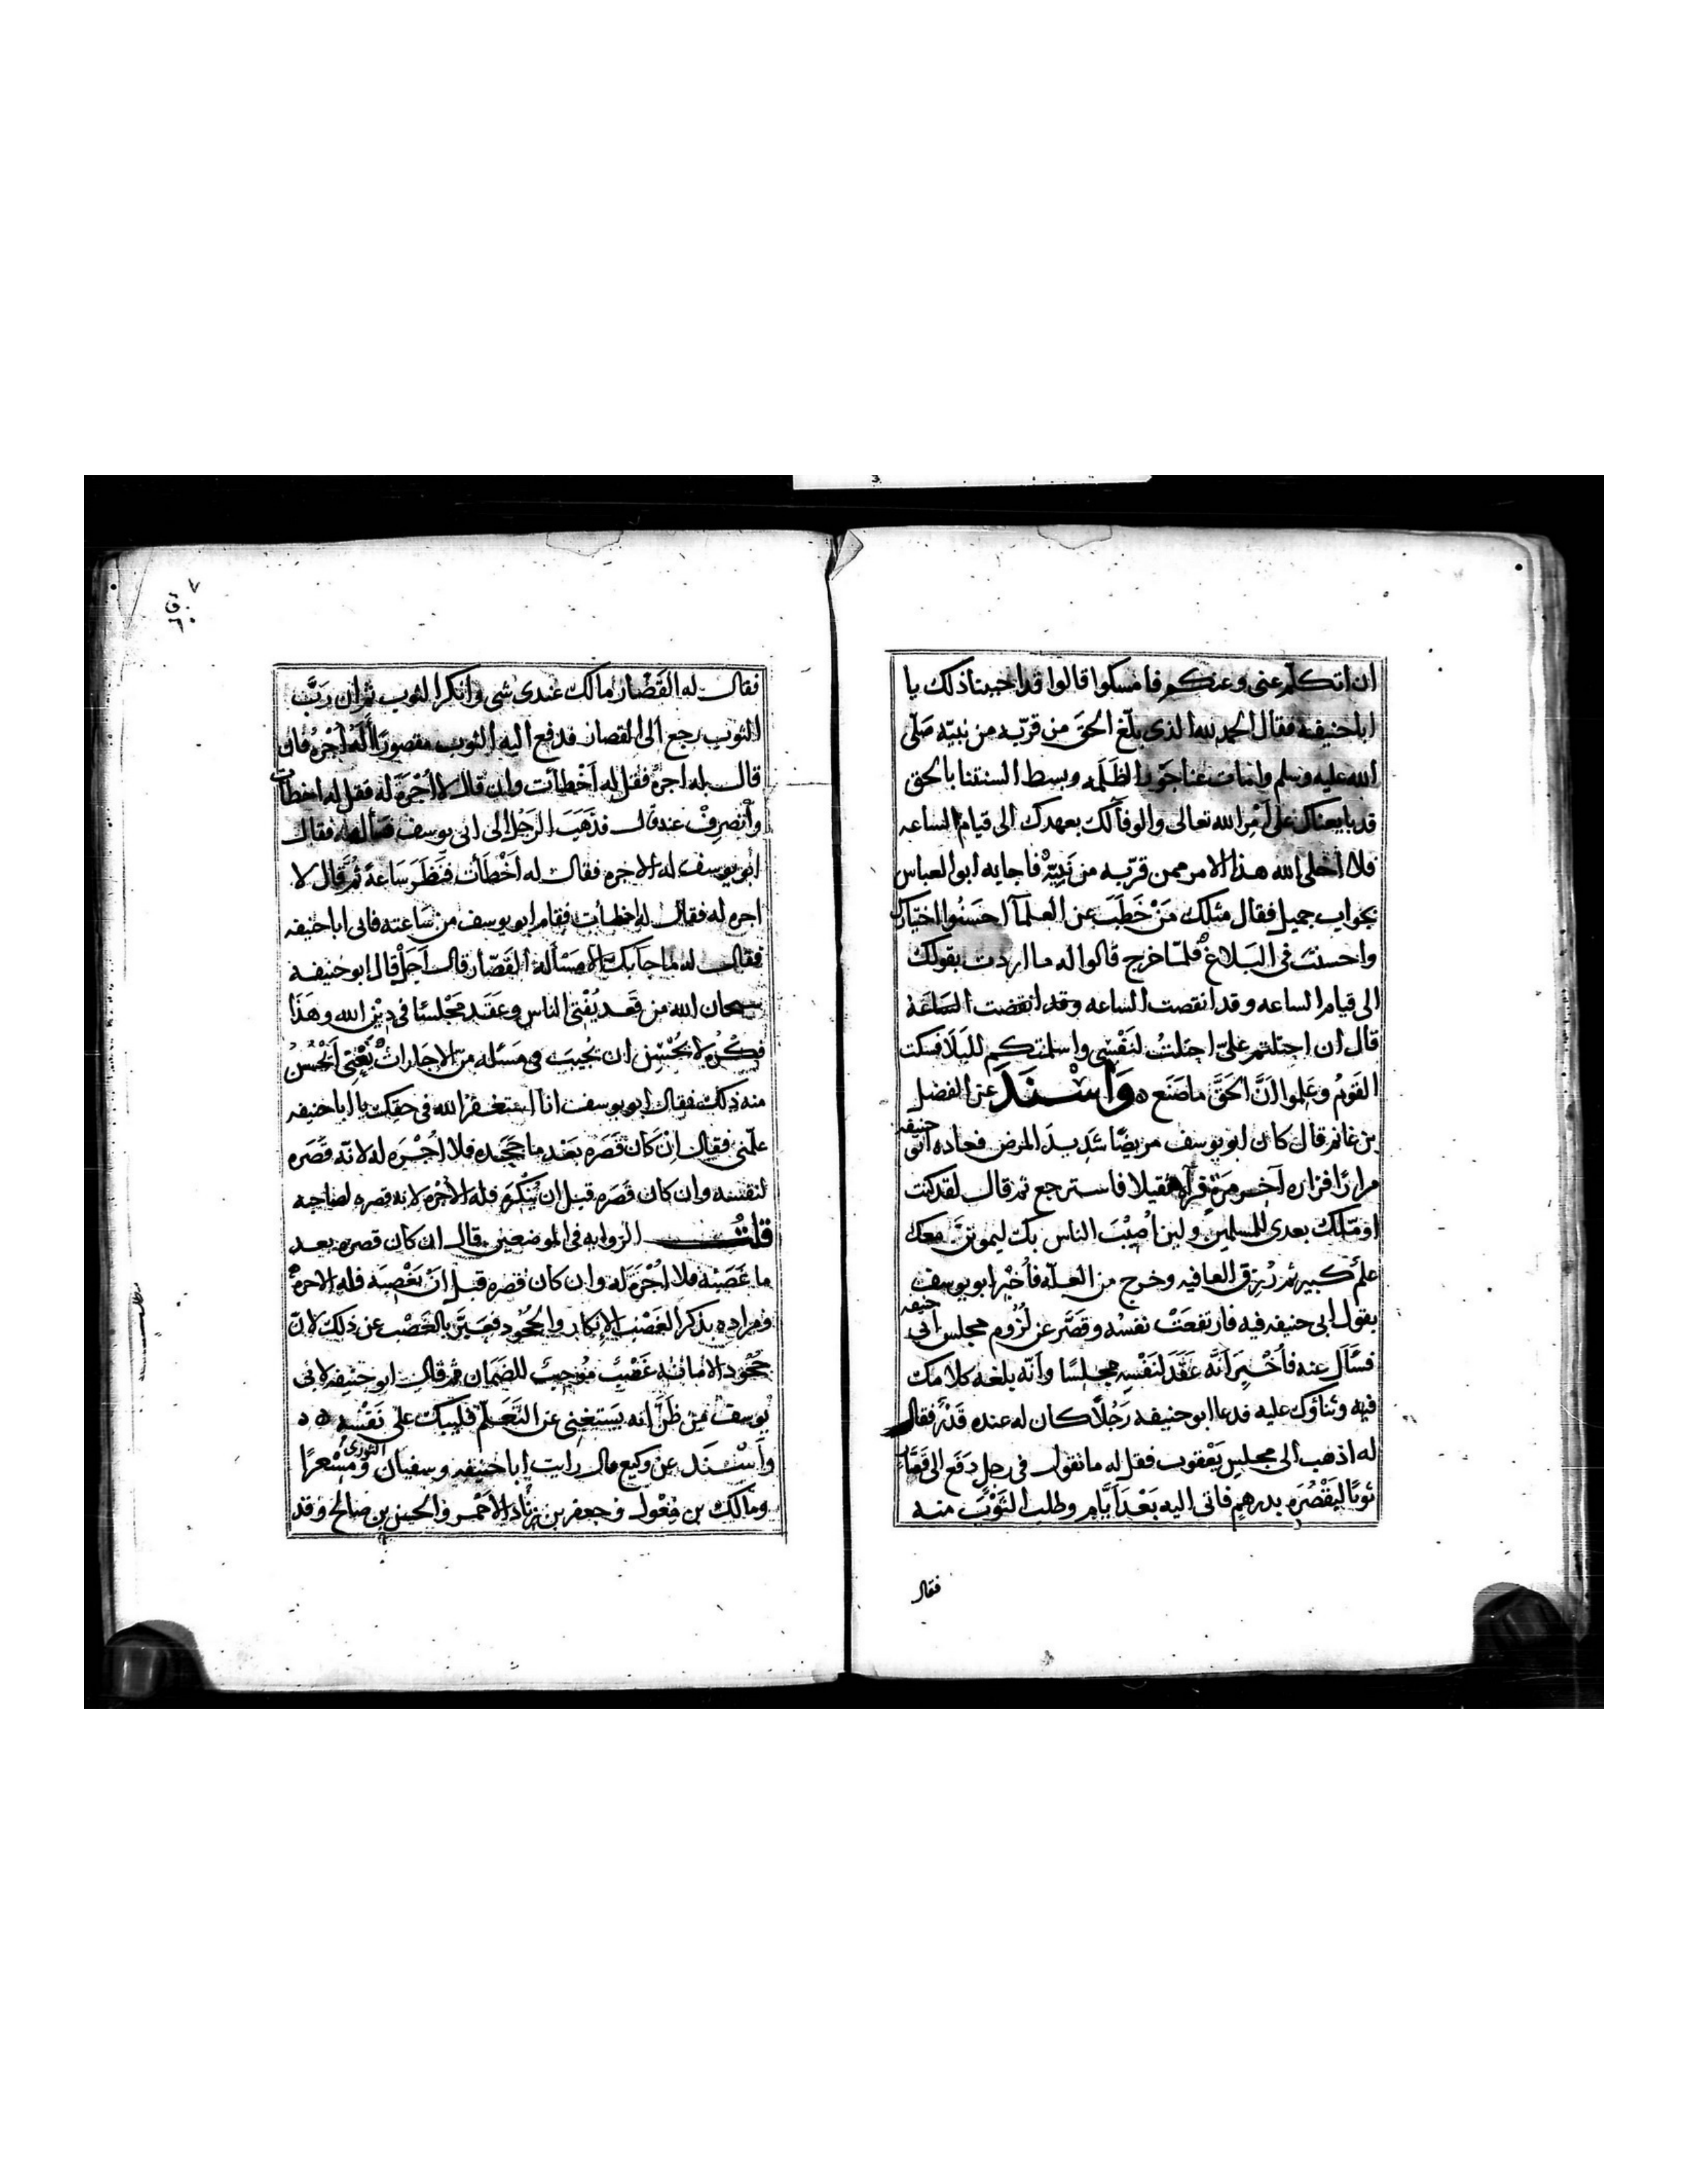 ان اتكلم عنى وعنكم فامسكوا قالوا قد احببنا ذلك يا
ابا حنيفه فقال الحمد لله الذى بلغ الحق من قربه من نبيه صلى
الله عليه وسلم وامات عنا جور الظلمه وبسط السنتنا بالحق
قد بايعناك على امر الله تعالى والوفا لك بعهدك الى قيام الساعه
فلا اخلى الله هذا الامر ممن قربه من نبيه فاجابه ابو العباس
بجواب جميل فقال مثلك من خطب عن العلما احسنوا اختيارك
واحسنت فى البلاغ فلما خرج قالوا له ما اردت بقولك
الى قيام الساعه وقد انقضت الساعه وقد انقضت الساعة
قال ان احتلتم على احتلت لنفسى واسلمتكم للبلا فسكت
القوم وعلموا ان الحق ما صنع ه وَأسْنَدَ عن الفضل
بن غانم قال كان ابو يوسف مريضا شديد المرض فعاده ابى حنيفه
مرارا فزاره آخر مرة فرآه ثقيلا فاسترجع ثم قال لقد كنت
اوملك بعدى للمسلمين ولين اصيب الناس بك ليموتن معك
علم كبير ثم رزق العافيه وخرج من العله فأخبر ابو يوسف
بقول ابى حنيفه فيه فارتفعت نفسه وقصر عن لزوم مجلس ابى حنيفه
فسأل عنه فأخبر أنه عقد لنفسه مجلسا وأنه بلغه كلامك
فيه وثناؤك عليه فدعا ابو حنيفه رجلا كان له عنده قدر فقال
له اذهب الى مجلس يعقوب فقل له ما تقول فى رجل دفع الى قصار
ثوبا ليقصره بدرهم فاتى اليه بعد ايام وطلب الثوب منه
فقال
فقال له القصار مالك عندى شى وانكر الثوب ثم ان رب
الثوب رجع الى القصار فدفع اليه الثوب مقصورا أله اجره فان
قال له اجره فقل له أخطأت وان قال لا اجرة له فقل له اخطأت
وأنصرف عنه قال فذهب الرجل الى ابى يوسف فسأله فقال
ابو يوسف له الاجره فقال له أخطأت فنظر ساعة ثم قال لا
اجره له فقال له اخطأت فقام ابو يوسف من ساعته فاتى ابا حنيفه
فقال له ما جا بك الا مسألة القصار قال اجل قال ابو حنيفه
سبحان الله من قعد يفتى الناس وعقد مجلسا فى دين الله وهذا
قدره لا يحسن ان يجيب فى مسئله من الاجارات
منه ذلك فقال ابو يوسف انا استغفر الله فى حقك يا ابا حنيفه
علمنى فقال ان كان قصره بعد ما جحده فلا اجره له لانه قصره
لنفسه وان كان قصره قبل ان ينكره فله الأجره لانه قصره لصاحبه
قلت الروايه فى الموضعين قال ان كان قصره بعد
ما غصبه فلا اجره له وان كان قصره قبل ان يغصبه فله الاجره
ومراده بذكر الغصب الإنكار والجحود فعبر بالغصب عن ذلك لان
جحود الامانه غصب موجب للضمان ثم قال ابو حنيفه لابى
يوسف من ظن انه يستغنى عن التعلم فليبك على نفسه ه ه
وأسند عن وكيع قال رايت ابا حنيفه وسفيان الثورى ومسعرا
ومالك بن مغول وجعفر بن زياد الاحمر والحسن بن صالح وقد